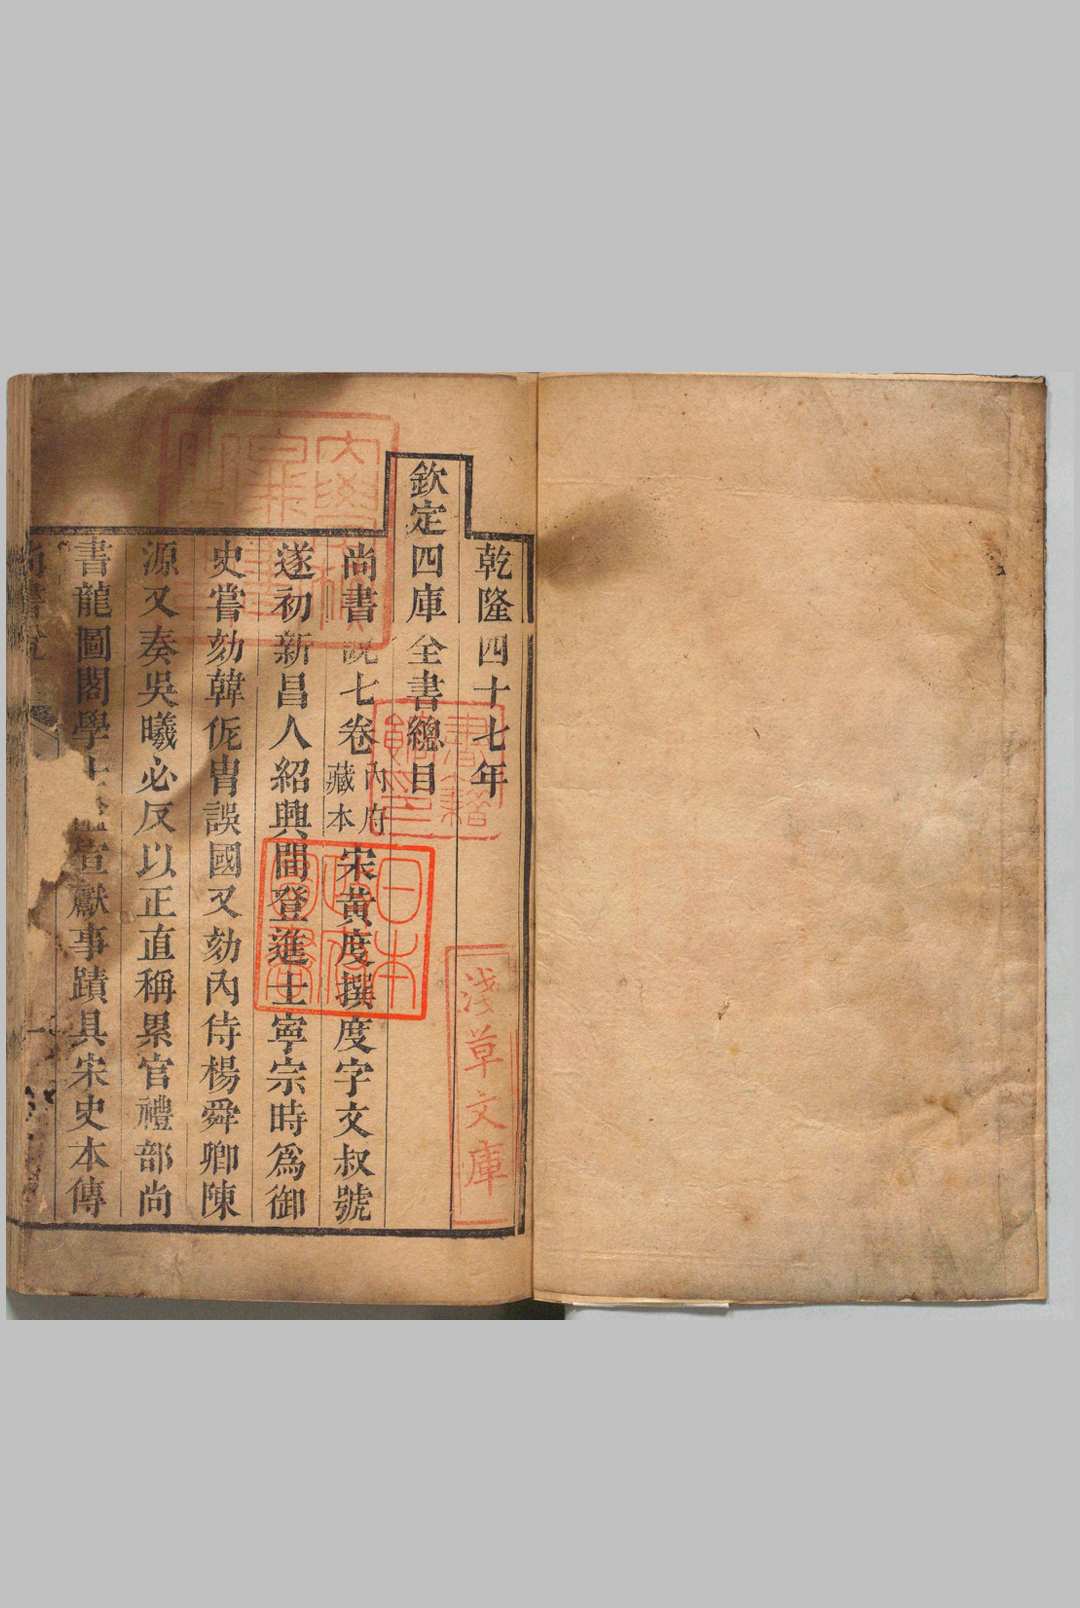 乾隆四十七年
欽定四庫全書總目
尚書說七卷
內府
藏本
宋黃度撰度字文叔號
遂初新昌人紹興間登進士寧宗時爲御
史嘗劾韓侂胄誤國又劾內侍楊舜卿陳
源又奏吳曦必反以正直稱累官禮部尚
書龍圖閣學士 宣獻事蹟具宋史本傳
尚書說
淺草文庫
日本政府圖書
書籍館印